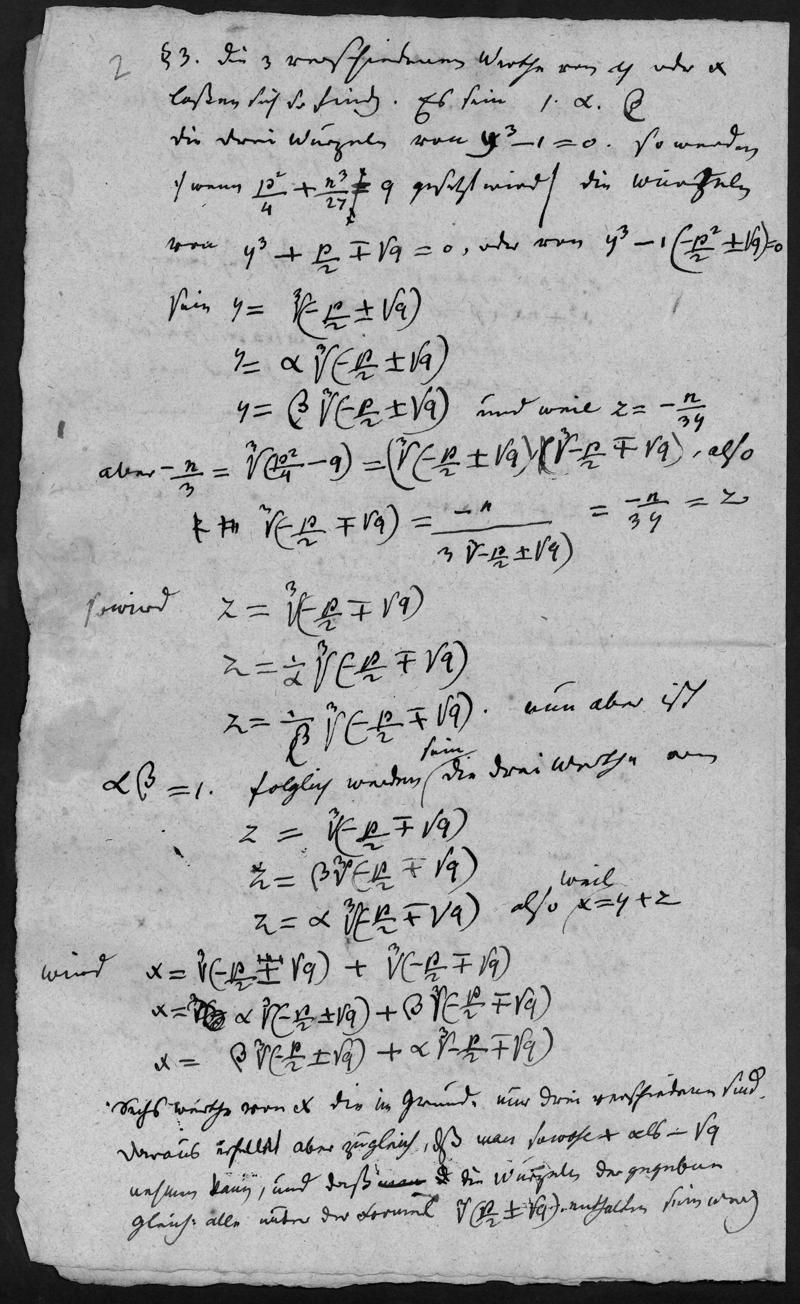 2 § 3. Die 3 verschiedenen Werthe von y oder x
laßen sich so finden. Es sein 1. α. β
die drei Wurzeln von y³ − 1 = 0. so werden
/wenn p²/4 + n³/27 = q gesetzt wird/ die Wurzeln
von y³ + p/2 ∓ √q = 0, oder von y³ − 1(−p²/2 ± √q) = 0
sein y = ∛(−p/2 ± √q)
y = α ∛(−p/2 ± √q)
y = β ∛(−p/2 ± √q) und weil z = −n/3y
aber −n/3 = ∛(p²/4 − q) = (∛(−p/2 ± √q)) (∛−p/2 ∓ √q), also
∛(−p/2 ∓ √q) = −n / 3 ∛−p/2 ± √q) = −n/3y = z
so wird z = ∛(−p/2 ∓ √q)
z = 1/α ∛(−p/2 ∓ √q)
z = 1/β ∛(−p/2 ∓ √q). nun aber ist
αβ = 1. folglich werden sein die drei Werthe von
z = ∛(−p/2 ∓ √q)
z = β∛(−p/2 ∓ √q)
z = α ∛(−p/2 ∓ √q) also weil x = y + z
wird x = ∛(−p/2 ± √q) + ∛(−p/2 ∓ √q)
x = α ∛(−p/2 ± √q) + β ∛(−p/2 ∓ √q)
x = β ∛(−p/2 ± √q) + α ∛−p/2 ∓ √q)
Sechs werthe von x die im Grunde nur drei verschiedene sind.
Daraus erhellt aber zugleich, daß man sowohl + als − √q
nehmen kann, und daß die Wurzeln der gegebenen
gleich: alle unter der Formel ∛(p/2 ± √q) enthalten sein